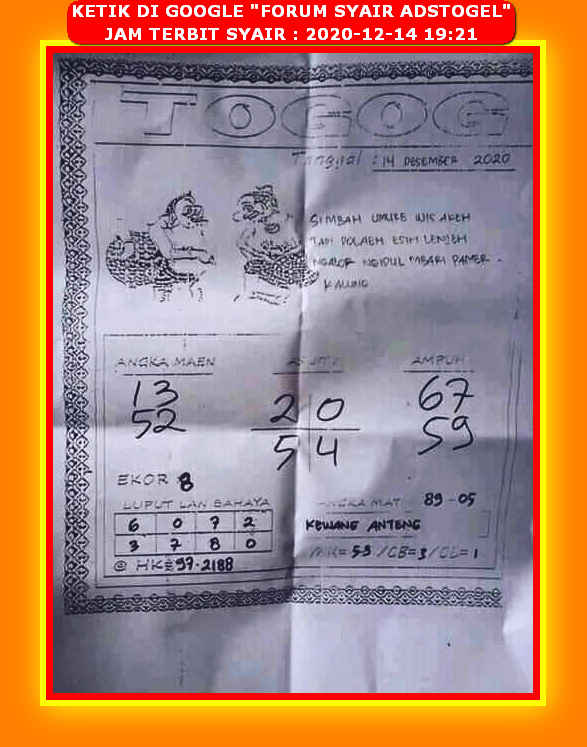 KETIK DI GOOGLE "FORUM SYAIR ADSTOGEL"
JAM TERBIT SYAIR : 2020-12-14 19:21
TOGOG
Tanggal : 14 DESEMBER 2020
SIMBAH UMURE WIS AKEH
TAPI POLAEH ESIH LENJEH
NGALOR NGIDUL MBARI PAMER
KALUNG
ANGKA MAEN
AMPUH
13
52
2 0
5 4
67
59
EKOR 8
LUPUT LAN BAHAYA
6 0 7 2
3 7 8 0
ANGKA MAT 89-05
KEWANG ANTENG
@ HK=97-2188
=59/CB=3/CL=1